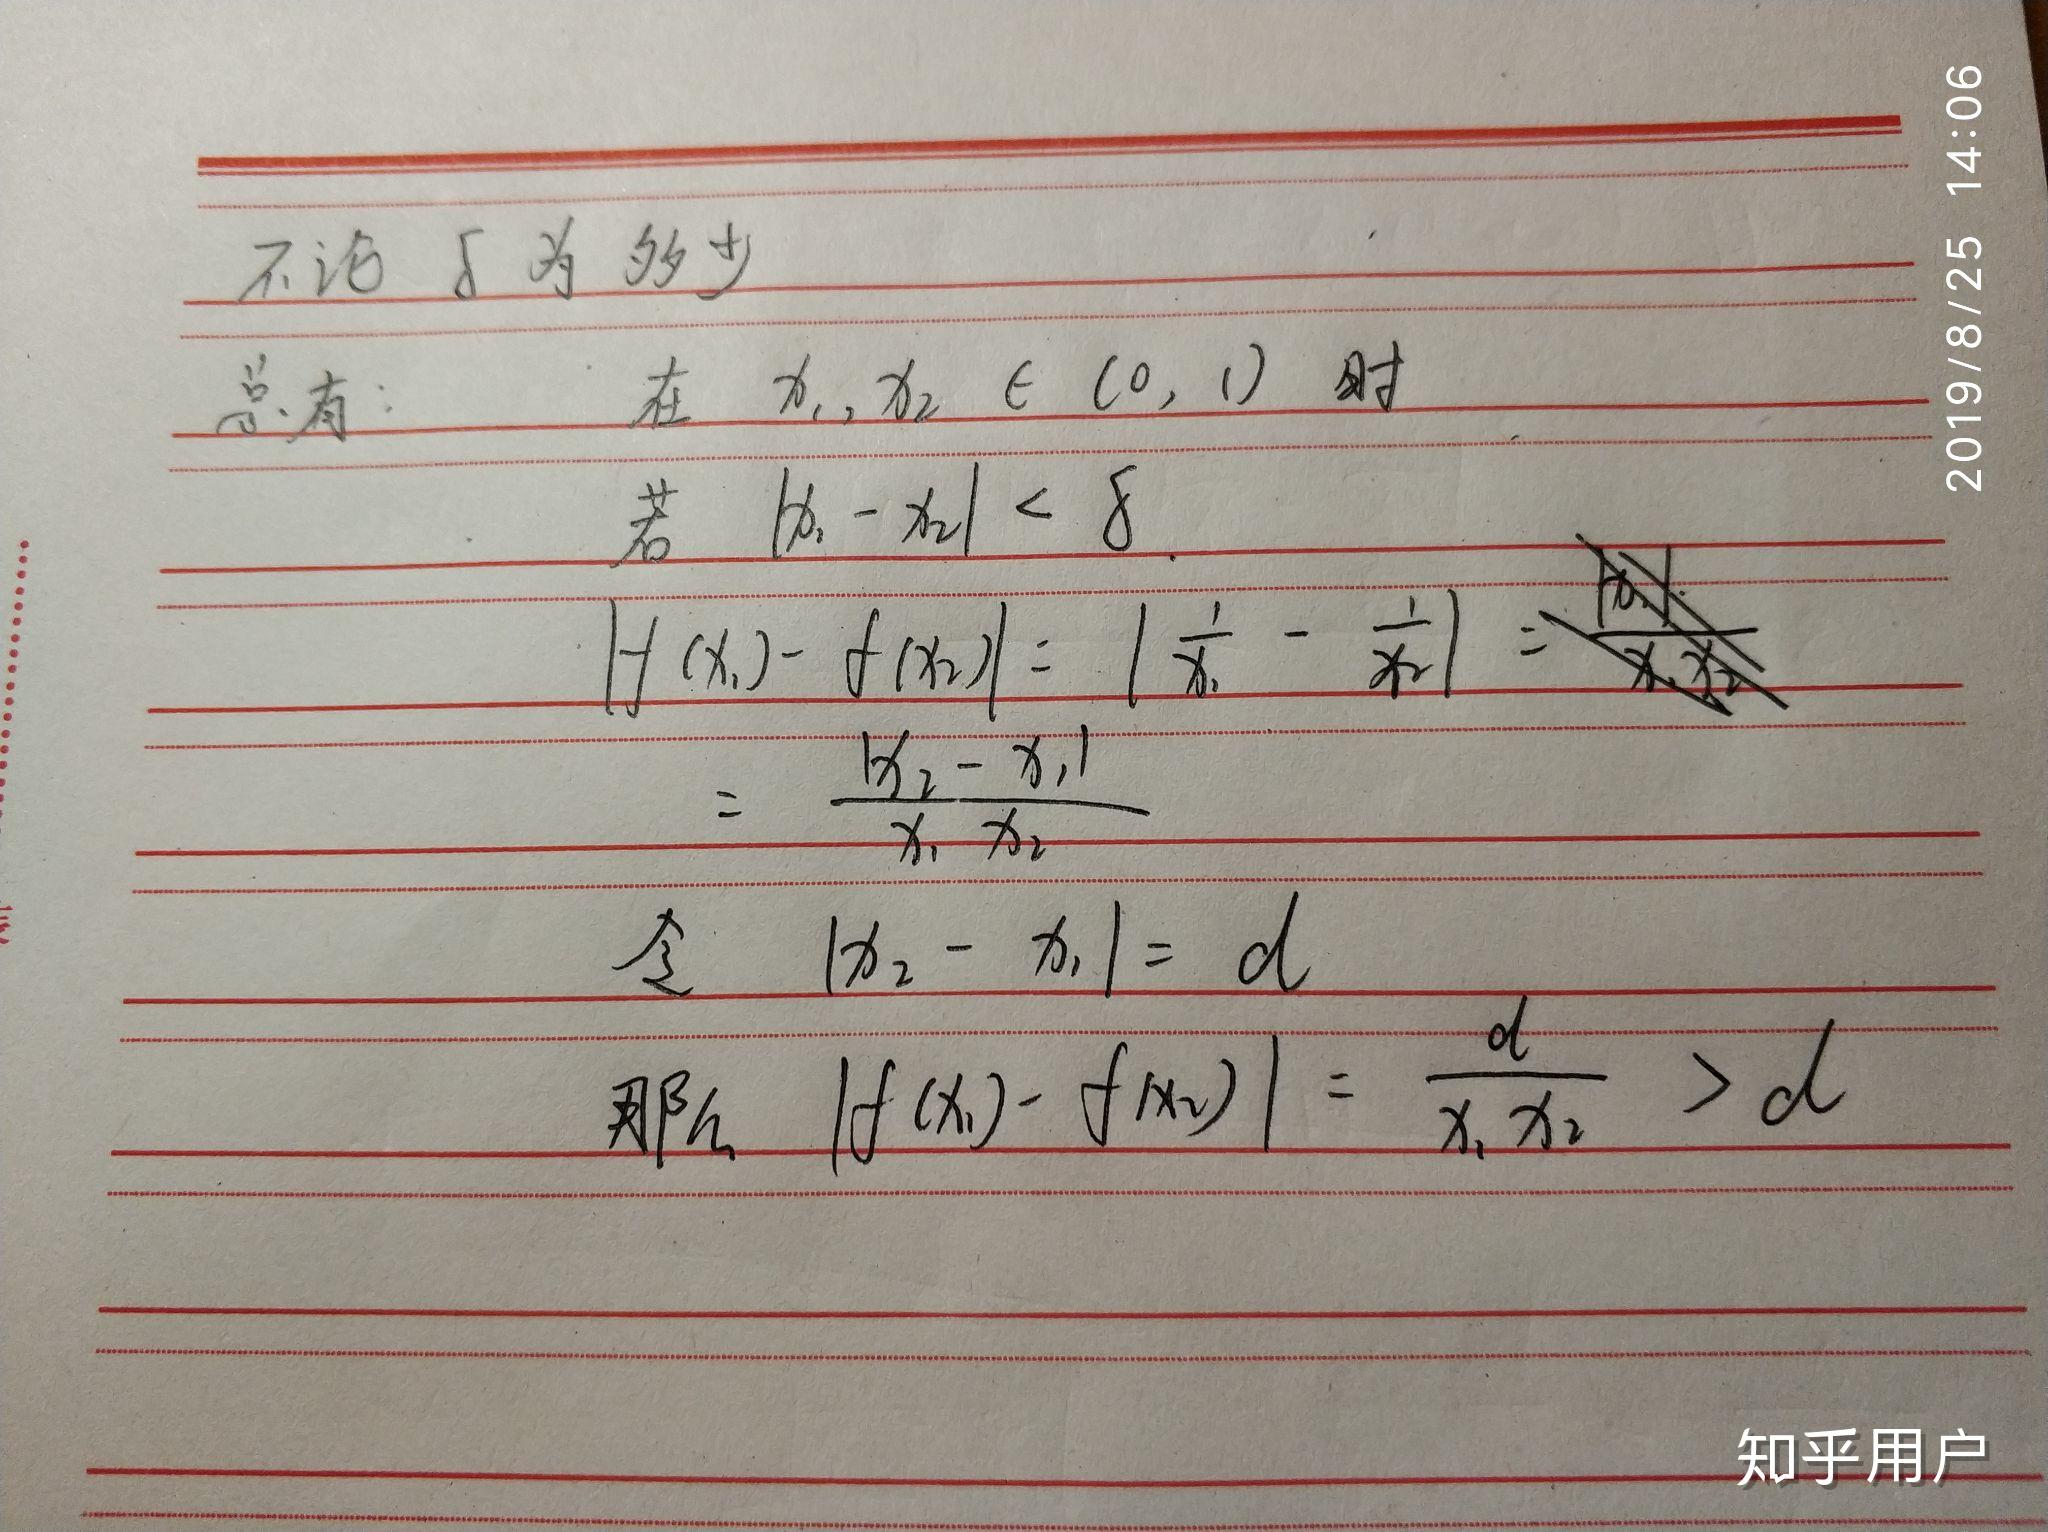 2019/8/25 14:06
不论 δ 为 多少
总有: 在 x₁, x₂ ∈ (0, 1) 时
若 |x₁ - x₂| < δ.
|f(x₁) - f(x₂)| = |1/x₁ - 1/x₂| =
= |x₂ - x₁| / x₁ x₂
令 |x₂ - x₁| = d
那么 |f(x₁) - f(x₂)| = d / x₁ x₂ > d
知乎用户